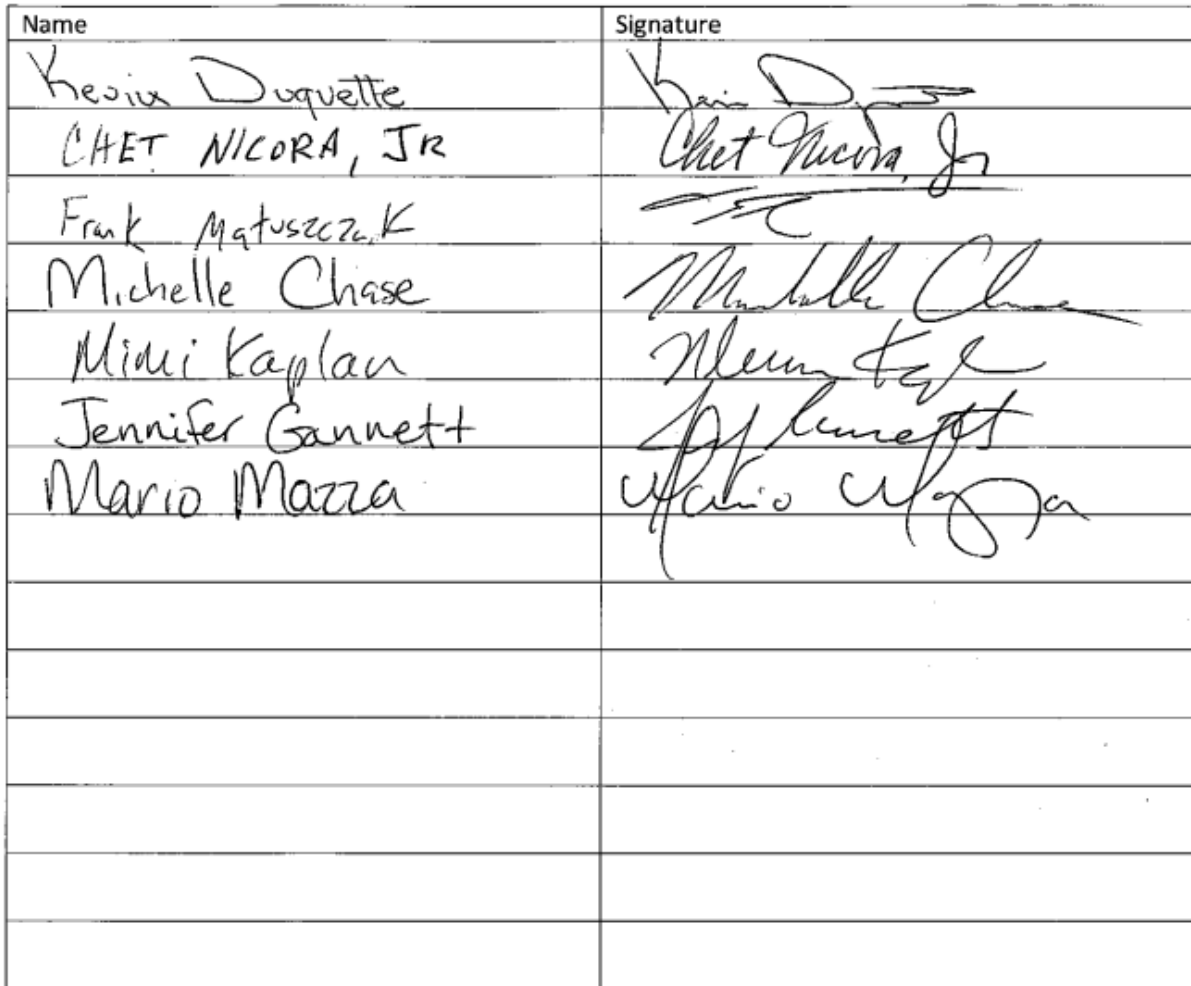 Name Signature
Kevin Duquette Kevin
CHET NICORA, JR Chet Nicora, Jr
Frank Matuszczak
Michelle Chase Michelle Chase
Mimi Kaplan
Jennifer Gannett Gannett
Mario Mazza Mario Mazza